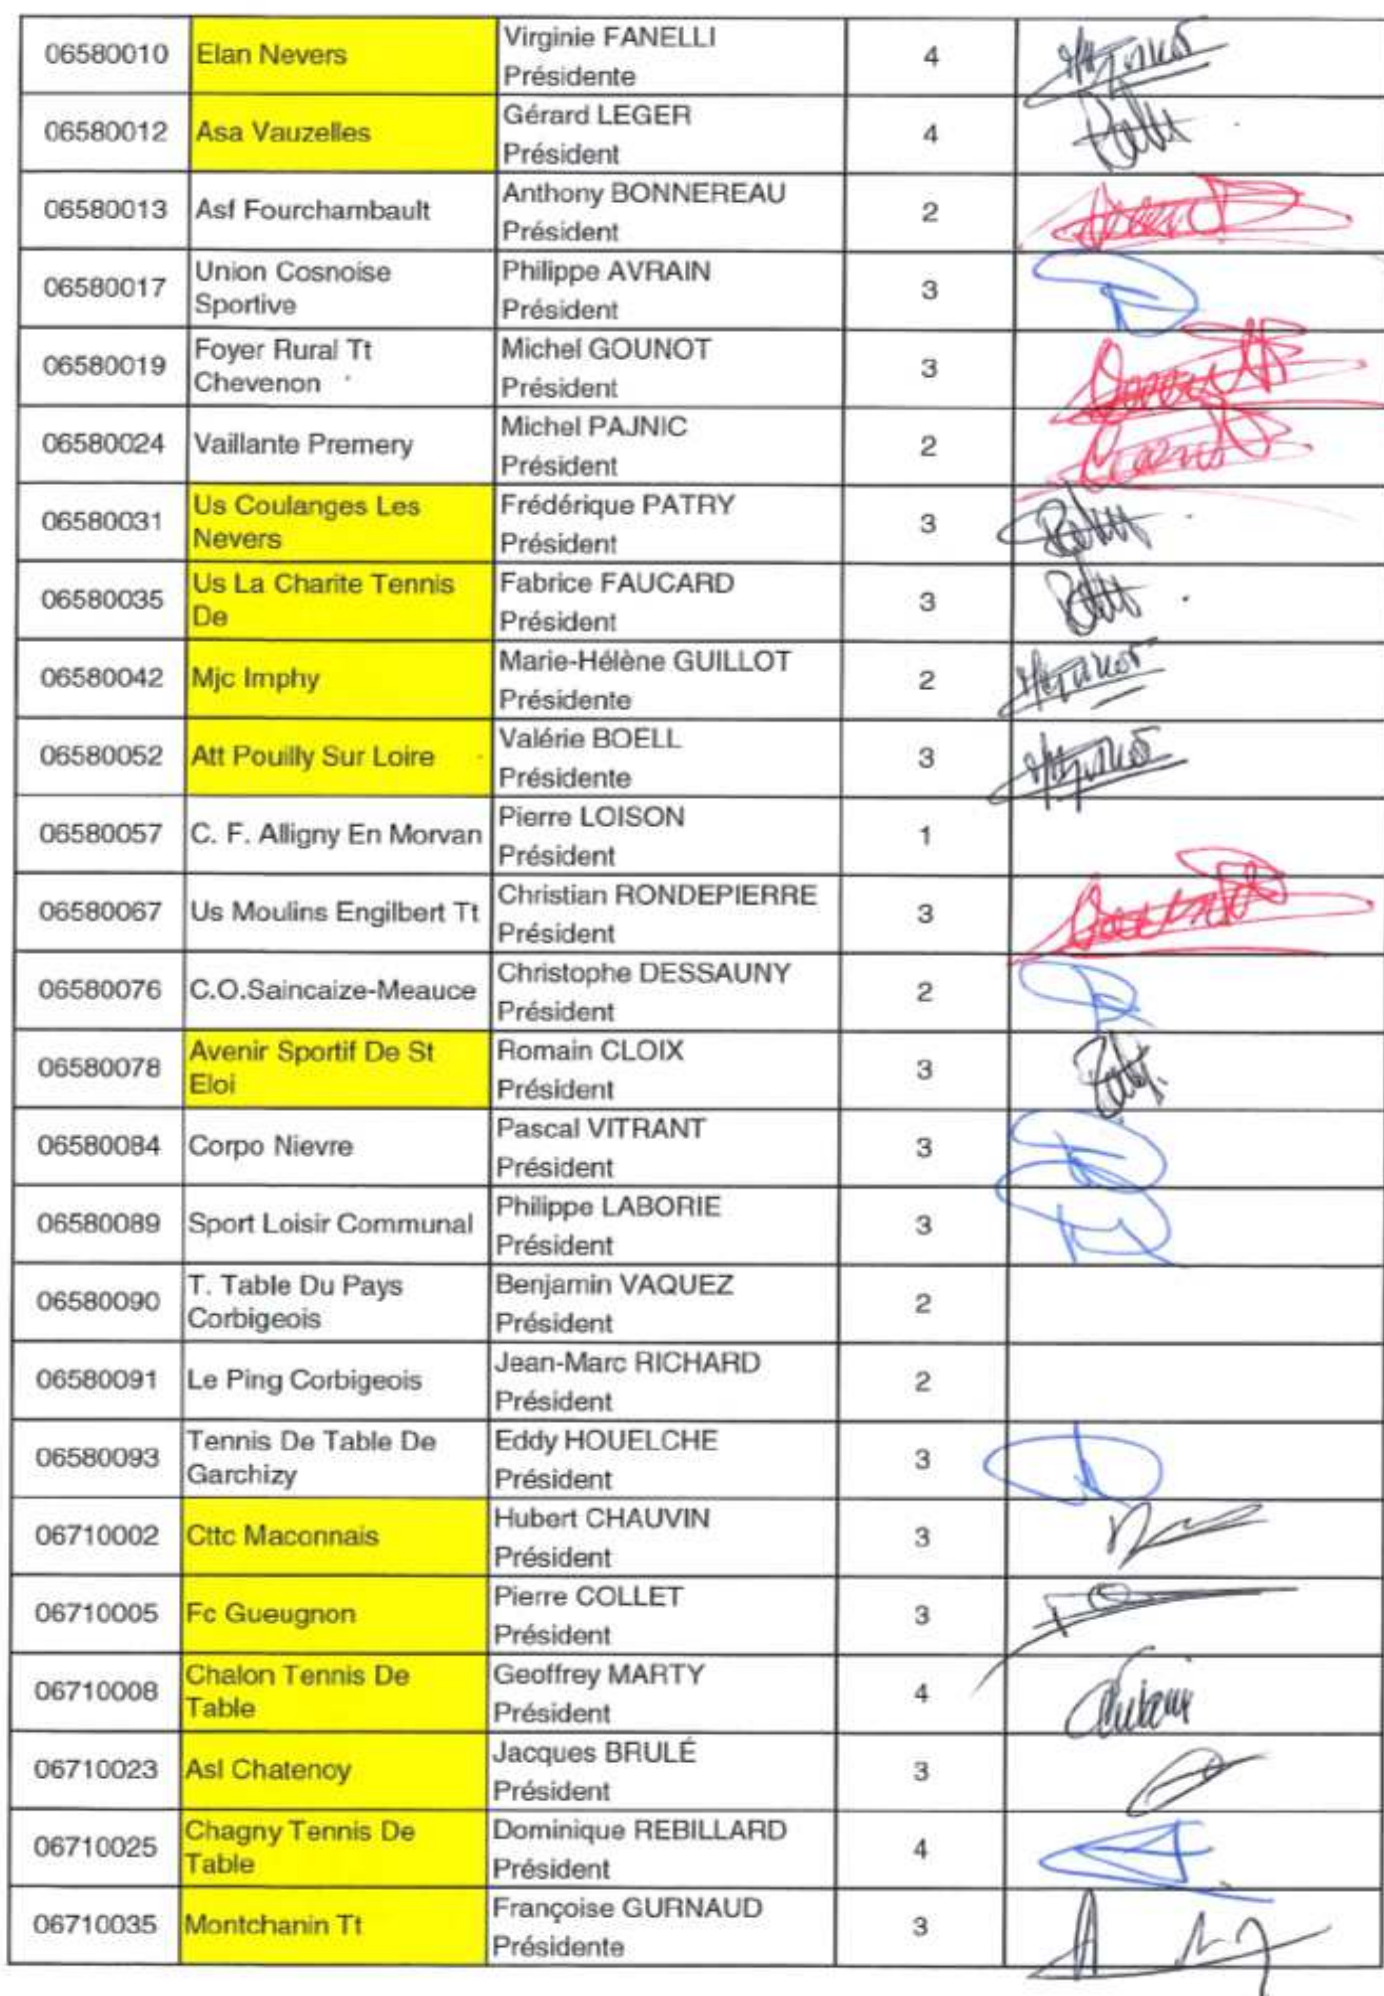 06580010 Elan Nevers Virginie FANELLI 4
Présidente
06580012 Asa Vauzelles Gérard LEGER 4
Président
06580013 Asf Fourchambault Anthony BONNEREAU 2
Président
06580017 Union Cosnoise Philippe AVRAIN 3
Sportive Président
06580019 Foyer Rural Tt Michel GOUNOT 3
Chevenon Président
06580024 Vaillante Premery Michel PAJNIC 2
Président
06580031 Us Coulanges Les Frédérique PATRY 3
Nevers Président
06580035 Us La Charite Tennis Fabrice FAUCARD 3
De Président
06580042 Mjc Imphy Marie-Hélène GUILLOT 2
Présidente
06580052 Att Pouilly Sur Loire Valérie BOELL 3
Présidente
06580057 C. F. Alligny En Morvan Pierre LOISON 1
Président
06580067 Us Moulins Engilbert Tt Christian RONDEPIERRE 3
Président
06580076 C.O.Saincaize-Meauce Christophe DESSAUNY 2
Président
06580078 Avenir Sportif De St Romain CLOIX 3
Eloi Président
06580084 Corpo Nievre Pascal VITRANT 3
Président
06580089 Sport Loisir Communal Philippe LABORIE 3
Président
06580090 T. Table Du Pays Benjamin VAQUEZ 2
Corbigeois Président
06580091 Le Ping Corbigeois Jean-Marc RICHARD 2
Président
06580093 Tennis De Table De Eddy HOUELCHE 3
Garchizy Président
06710002 Cttc Maconnais Hubert CHAUVIN 3
Président
06710005 Fc Gueugnon Pierre COLLET 3
Président
06710008 Chalon Tennis De Geoffrey MARTY 4
Table Président
06710023 Asl Chatenoy Jacques BRULÉ 3
Président
06710025 Chagny Tennis De Dominique REBILLARD 4
Table Président
06710035 Montchanin Tt Françoise GURNAUD 3
Présidente